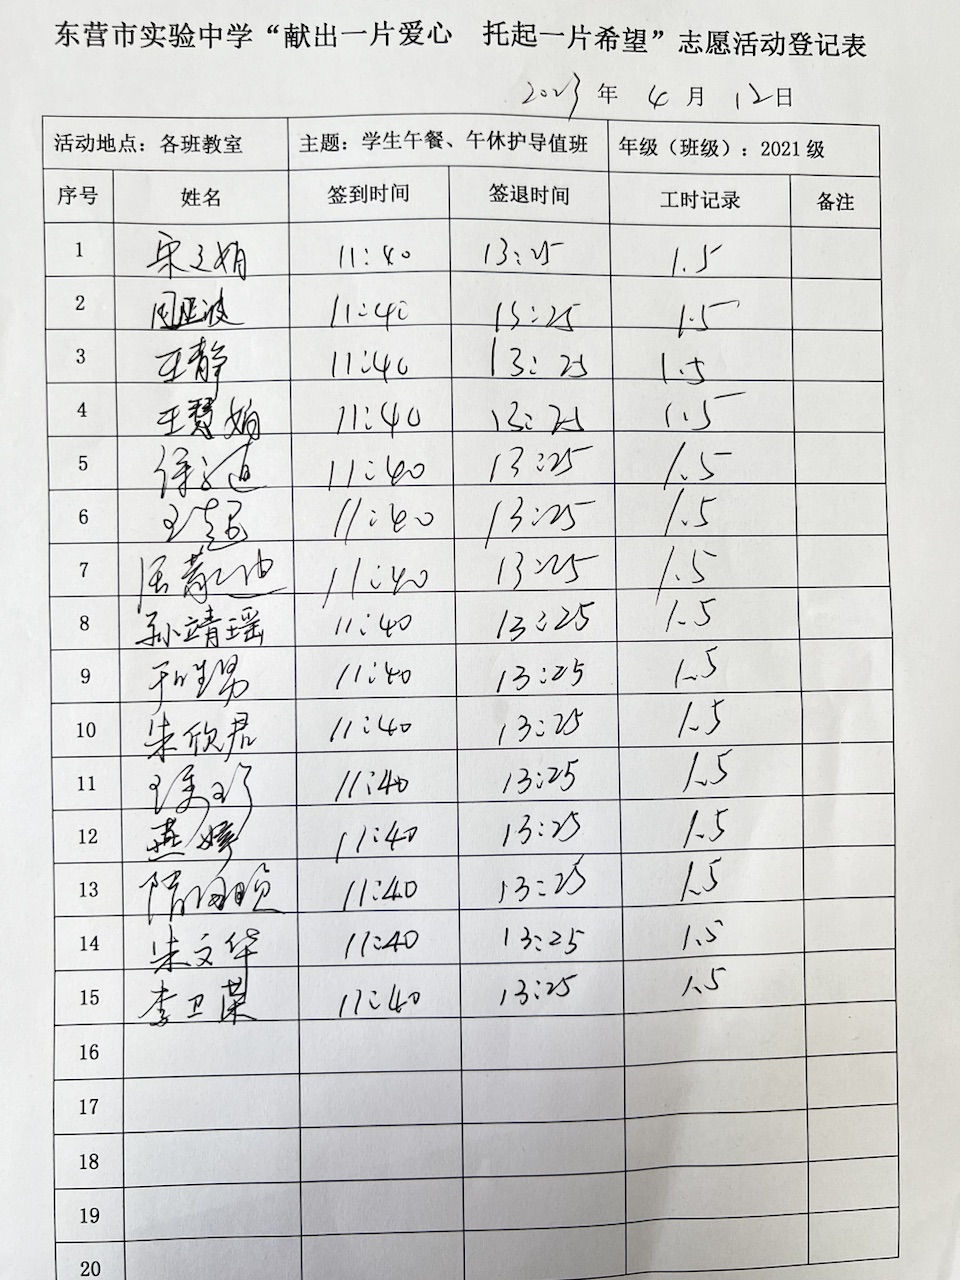 东营市实验中学“献出一片爱心 托起一片希望”志愿活动登记表
2023 年 4 月 12 日
活动地点：各班教室 主题：学生午餐、午休护导值班 年级（班级）：2021 级
序号 姓名 签到时间 签退时间 工时记录 备注
1 宋文娟 11:40 13:25 1.5
2 周亚波 11:40 13:25 1.5
3 王静 11:40 13:25 1.5
4 王慧娟 11:40 13:25 1.5
5 11:40 13:25 1.5
6 11:40 13:25 1.5
7 11:40 13:25 1.5
8 孙靖瑶 11:40 13:25 1.5
9 11:40 13:25 1.5
10 朱欣君 11:40 13:25 1.5
11 11:40 13:25 1.5
12 燕婷 11:40 13:25 1.5
13 11:40 13:25 1.5
14 朱文华 11:40 13:25 1.5
15 李卫荣 11:40 13:25 1.5
16
17
18
19
20